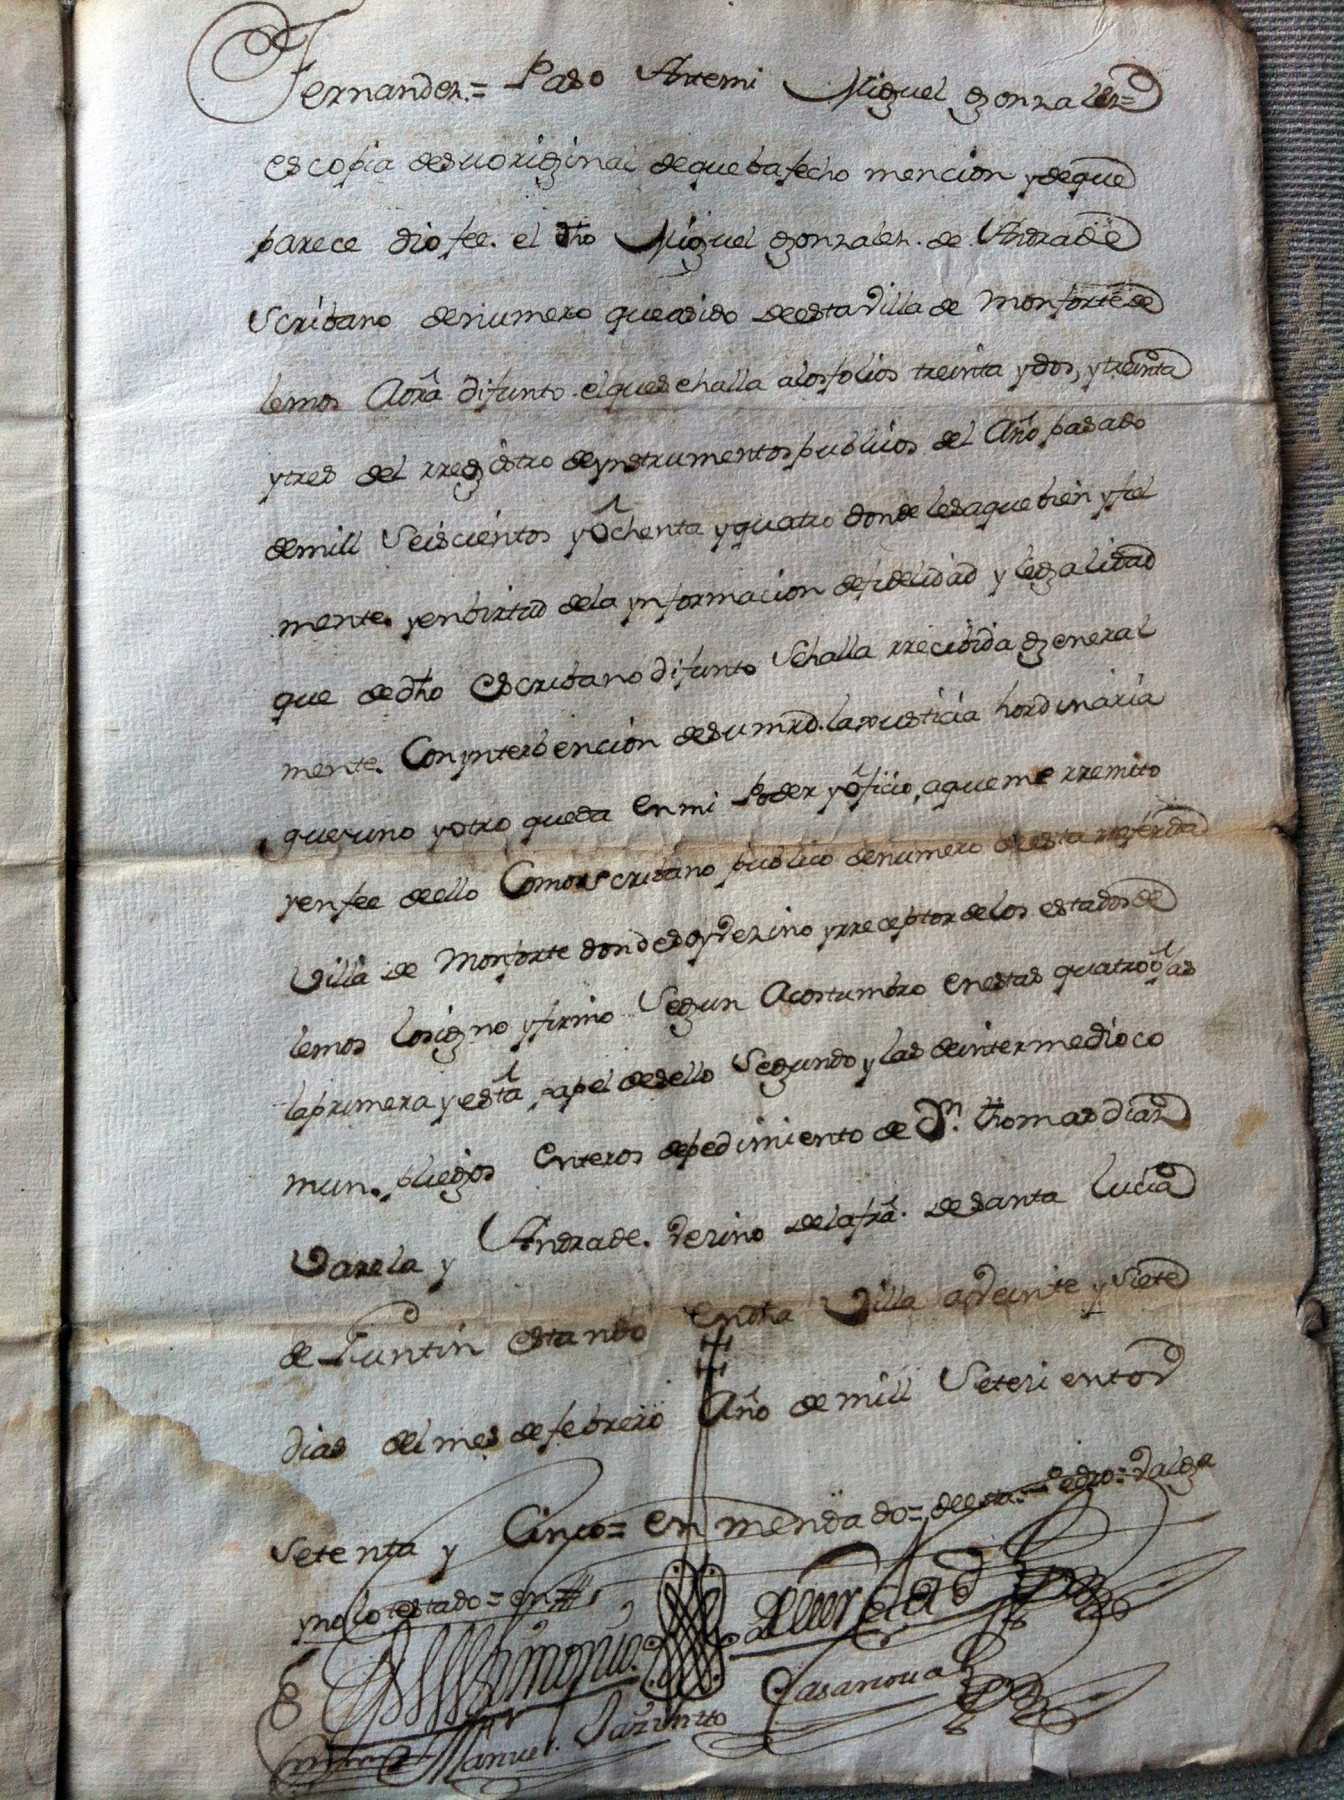 Fernandez = Paso Antemi Miguel gonzalez =
es copia desu original deque ba fecho mencion y deque
parece dio fee. el dho Miguel gonzalez. de Andrade
Scribano denumero queasido deesta Villa de Monforte de
lemos Aora difunto. elquesehalla alosfolios treinta ydos, y treinta
ytres del rregistro deynstrumentos publicos del Año pasado
demill Seiscientos yochenta yquatro donde lesaque bien y fiel
mente. yenbirtud dela ynformacion defidelidad y legalidad
que dedho Escribano difunto Sehalla rrecibida general
mente. Conynterbencion desumrd. lajusticia hordinaria
queuno yotro queda Enmi Poder yoficio, aqueme rremito
yenfee deello Como Scribano publico denumero deesta rreferida
Villa de Monforte dondesoy Vezino yrreceptor delos estados de
lemos losigno yfirmo Segun Acostumbro Enestas quatro ojas
laprimera y esta papel desello Segundo y las deintermedio co
mun. pliegos Enteros depedimiento de Dn. thomas diaz
Varela y Andrade. Vezino delafra. desanta Lucia
de Guntin estando Endha Villa a Veinte y Siete
dias del mes de febrero Año de mill Setezientos
Setenta y Cinco = Enmendado = deesta = Pedro = Valga
ynolo testado = en =
En testimonio de Verdad
Manuel. Jazintto Casanova